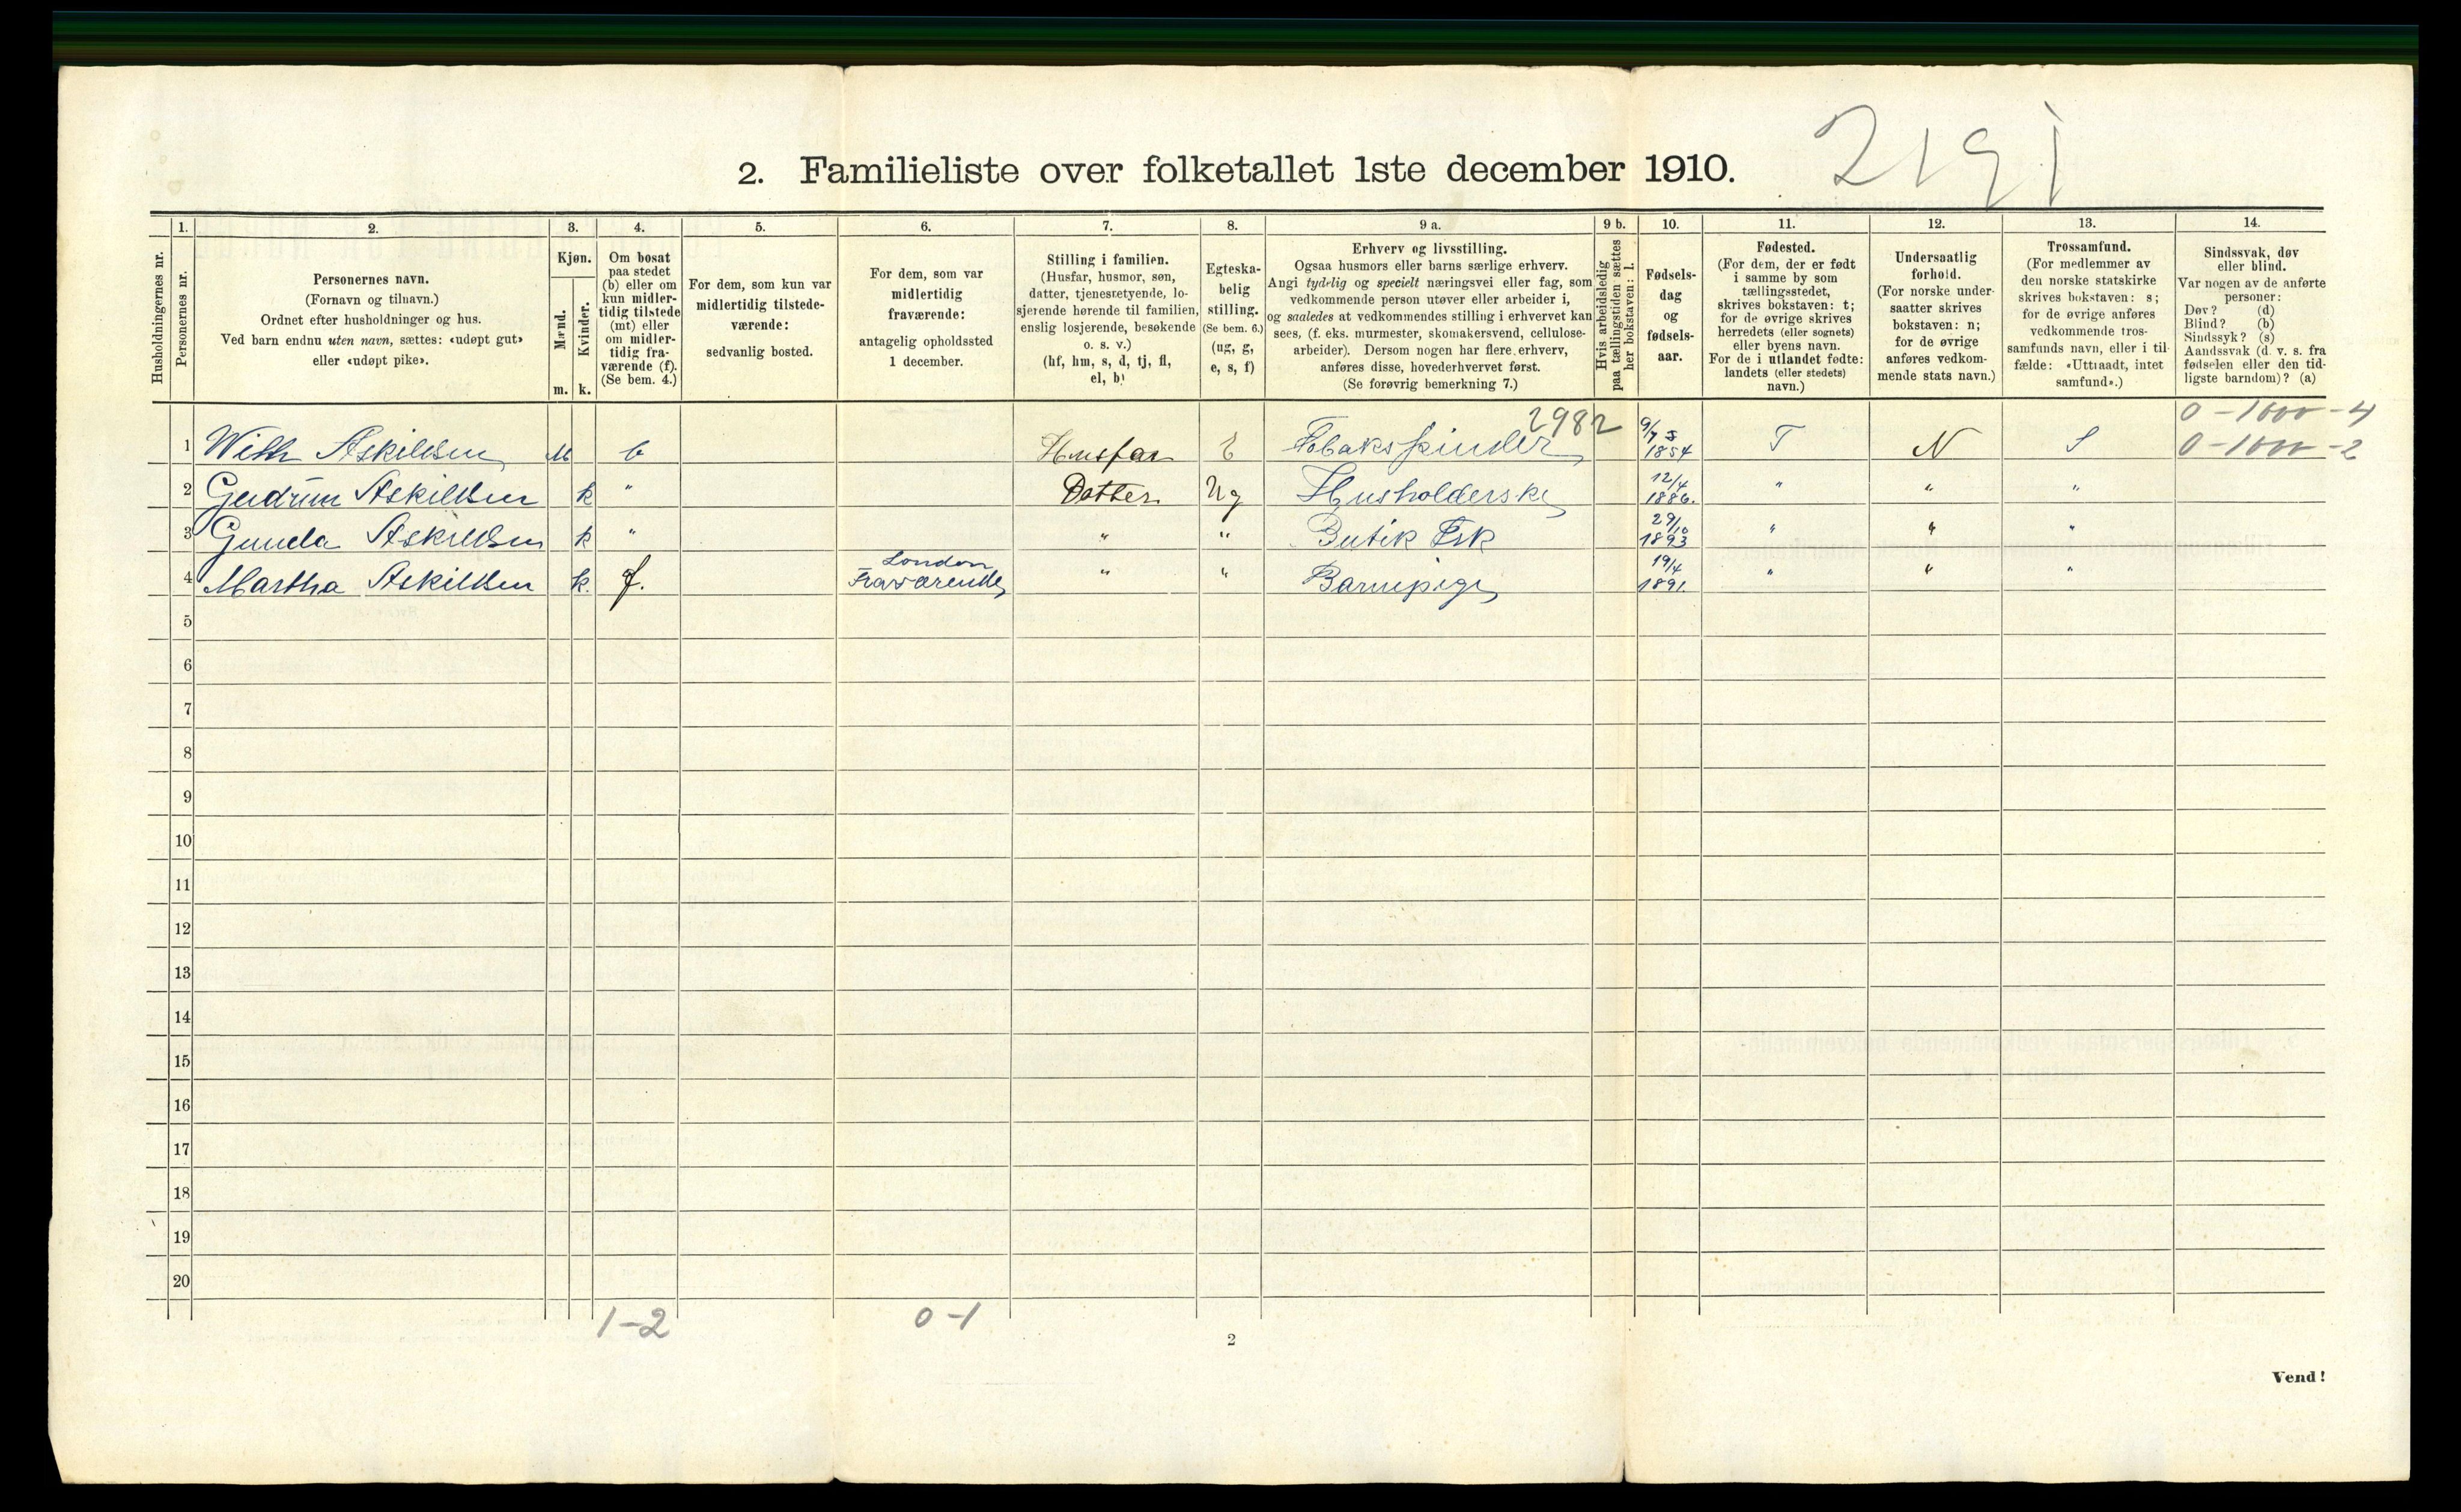 2191
2. Familieliste over folketallet 1ste december 1910.
Husholdningernes nr.
1. Personernes nr.
2. Personernes navn. (Fornavn og tilnavn.) Ordnet efter husholdninger og hus. Ved barn endnu uten navn, sættes: «udøpt gut» eller «udøpt pike».
3. Kjøn. Mænd. m. Kvinder. k.
4. Om bosat paa stedet (b) eller om kun midlertidig tilstede (mt) eller om midlertidig fraværende (f). (Se bem. 4.)
5. For dem, som kun var midlertidig tilstedeværende: sedvanlig bosted.
6. For dem, som var midlertidig fraværende: antagelig opholdssted 1 december.
7. Stilling i familien. (Husfar, husmor, søn, datter, tjenestetyende, losjerende hørende til familien, enslig losjerende, besøkende o. s. v.) (hf, hm, s, d, tj, fl, el, b)
8. Egteskabelig stilling. (Se bem. 6.) (ug, g, e, s, f)
9 a. Erhverv og livsstilling. Ogsaa husmors eller barns særlige erhverv. Angi tydelig og specielt næringsvei eller fag, som vedkommende person utøver eller arbeider i, og saaledes at vedkommendes stilling i erhvervet kan sees, (f. eks. murmester, skomakersvend, cellulosearbeider). Dersom nogen har flere erhverv, anføres disse, hovederhvervet først. (Se forøvrig bemerkning 7.)
9 b. Hvis arbeidsledig paa tællingstiden sættes her bokstaven: l.
10. Fødselsdag og fødselsaar.
11. Fødested. (For dem, der er født i samme by som tællingsstedet, skrives bokstaven: t; for de øvrige skrives herredets (eller sognets) eller byens navn. For de i utlandet fødte: landets (eller stedets) navn.)
12. Undersaatlig forhold. (For norske undersaatter skrives bokstaven: n; for de øvrige anføres vedkommende stats navn.)
13. Trossamfund. (For medlemmer av den norske statskirke skrives bokstaven: s; for de øvrige anføres vedkommende trossamfunds navn, eller i tilfælde: «Uttraadt, intet samfund».)
14. Sindssvak, døv eller blind. Var nogen av de anførte personer: Døv? (d) Blind? (b) Sindssyk? (s) Aandssvak (d. v. s. fra fødselen eller den tidligste barndom)? (a)
2982
0-1000-4
1 Wilh Askildsen M b Husfar E Tobaksspinder 9/7 1854 T N S 0-1000-2
2 Gudrun Askildsen k " Datter Ug Husholderske 12/4 1886. " " "
3 Gunda Askildsen k " " " Butik Esk 29/10 1893 " " "
4 Martha Askildsen k. f. London Fraværende " " Barnepige 19/4 1891. " " "
5
6
7
8
9
10
11
12
13
14
15
16
17
18
19
20
1-2 0-1
2
Vend!